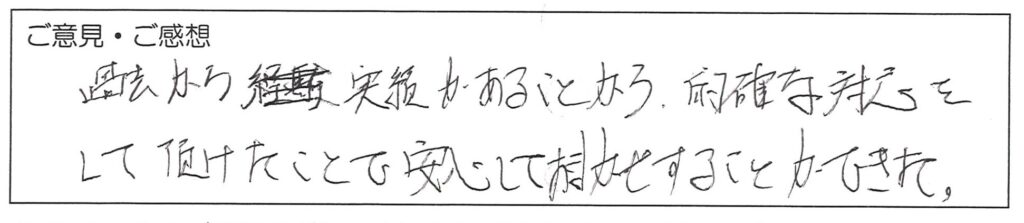 ご意見・ご感想
過去から実績があることから、的確な対応を
して頂けたことで安心しておまかせすることができた。